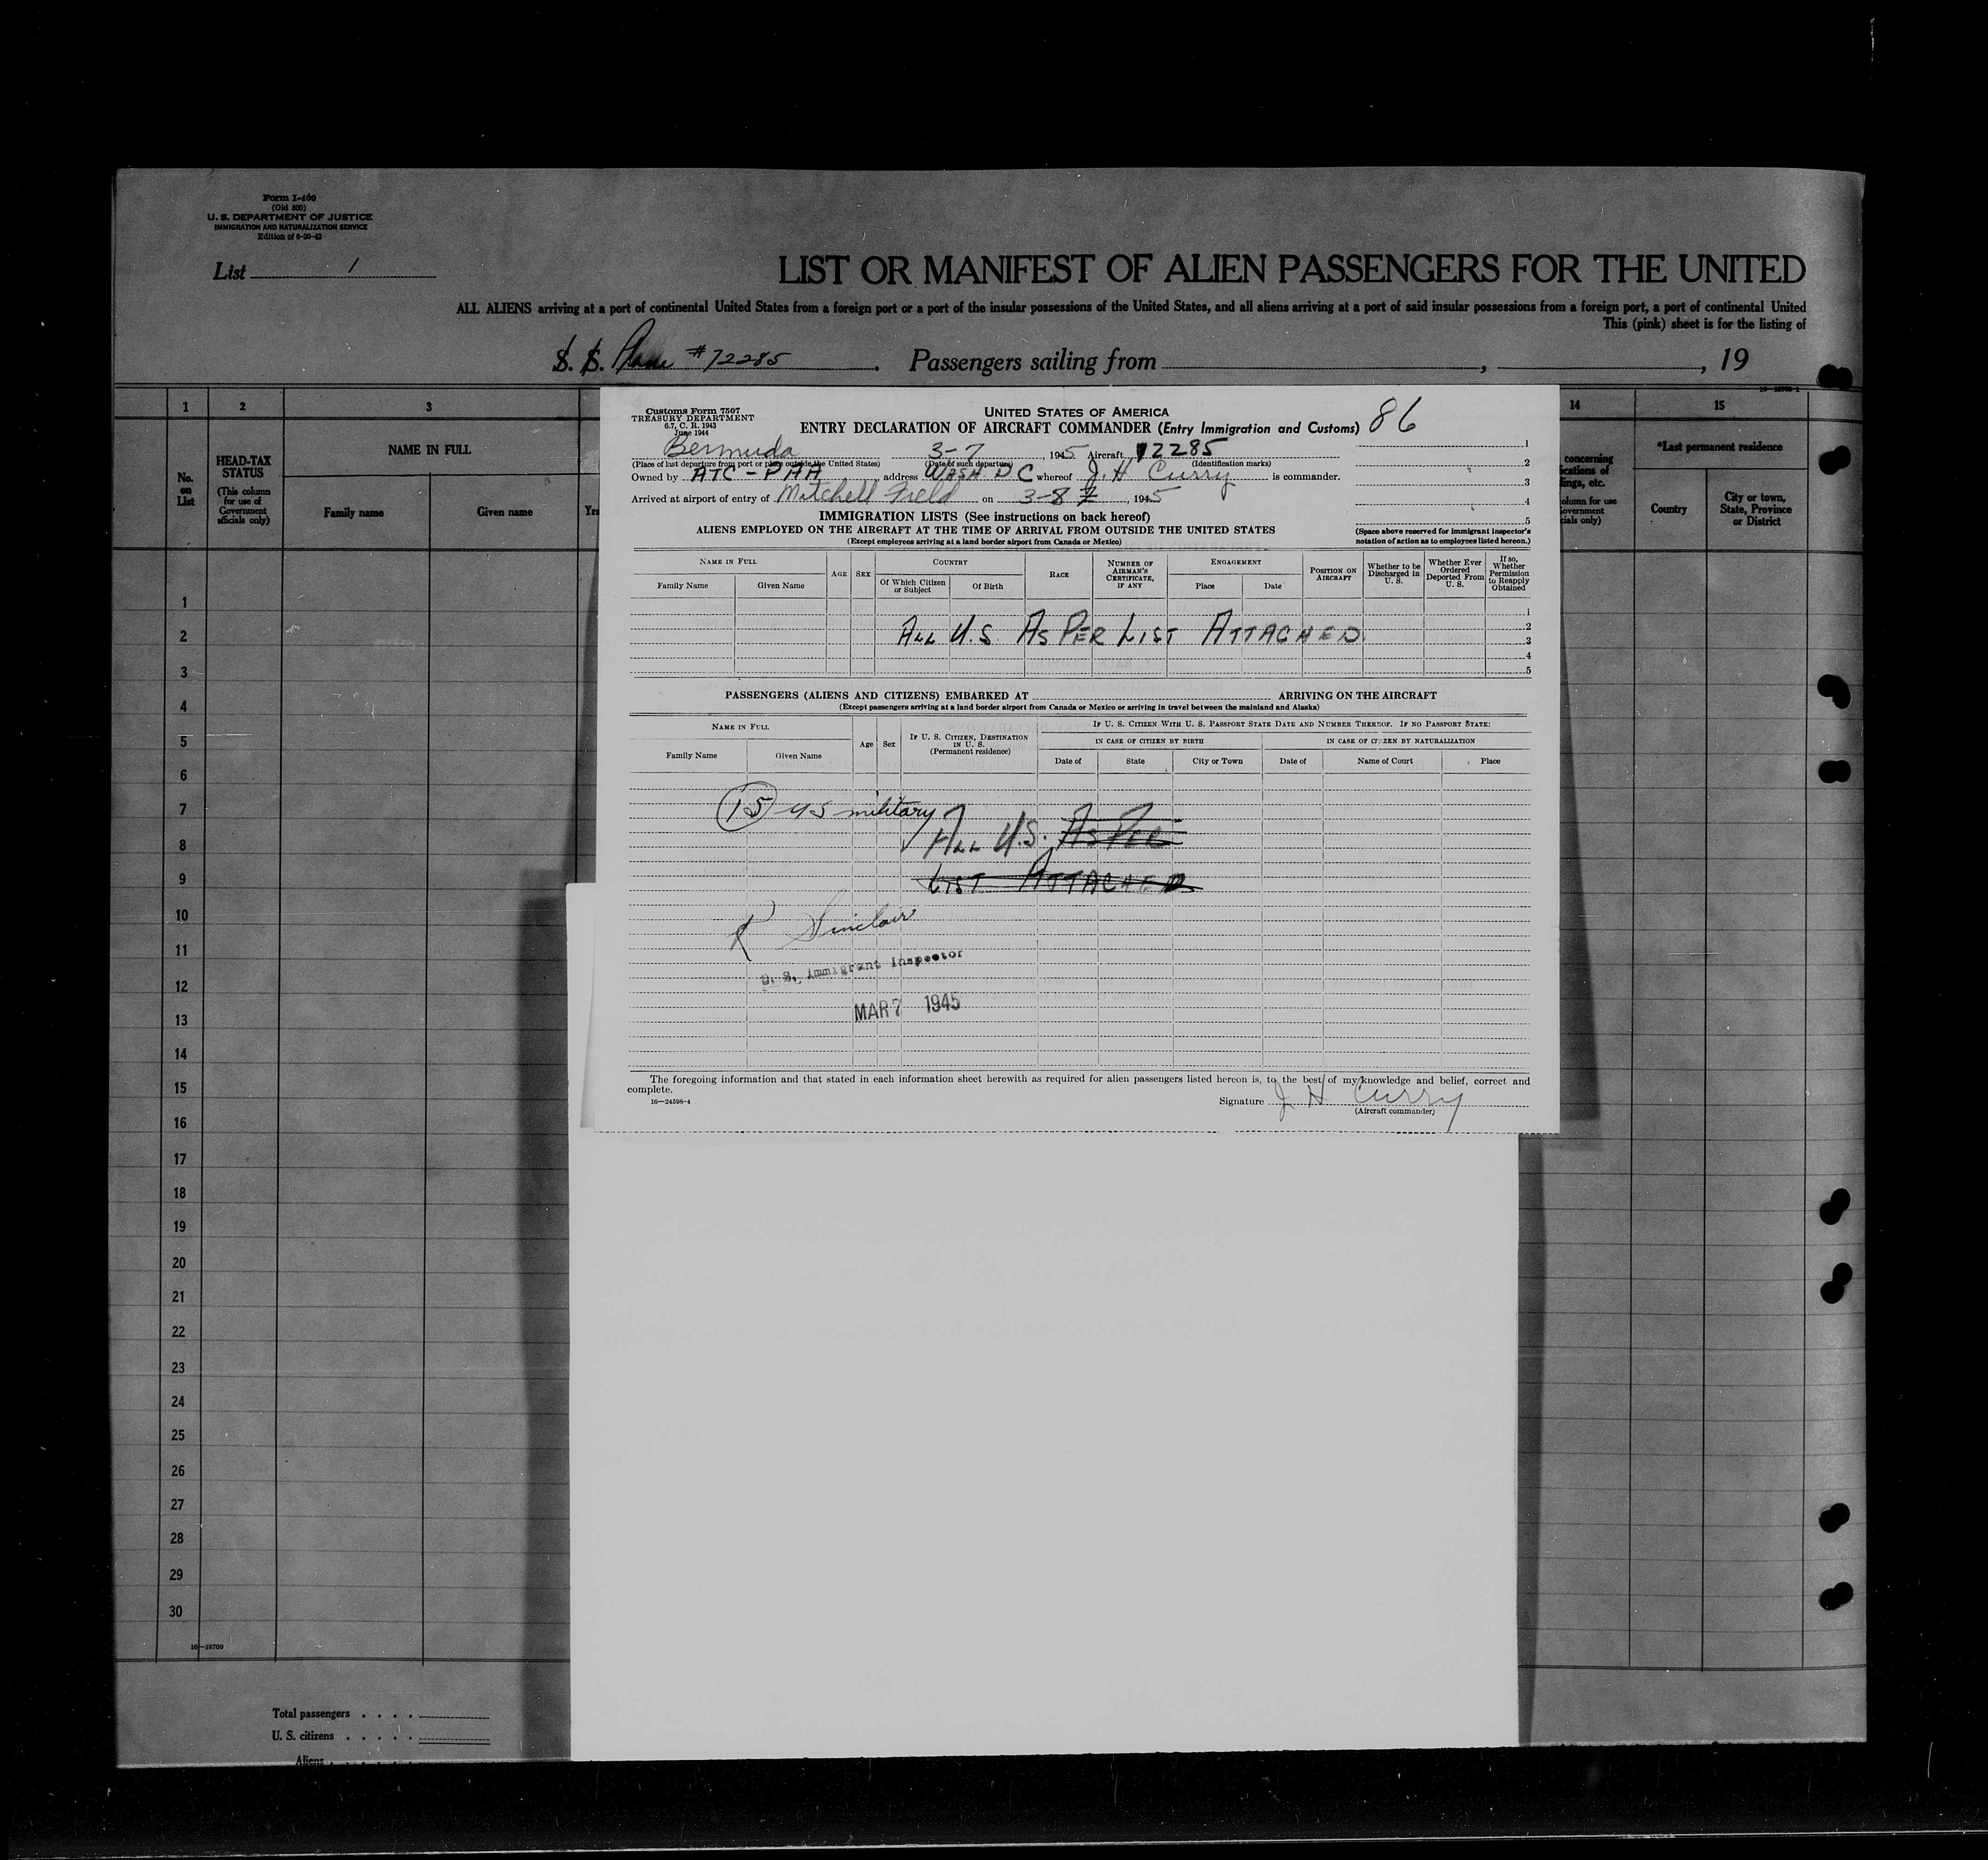 Form I-400
(Old 500)
U. S. DEPARTMENT OF JUSTICE
IMMIGRATION AND NATURALIZATION SERVICE
Edition of 6-20-42
List 1
LIST OR MANIFEST OF ALIEN PASSENGERS FOR THE UNITED
ALL ALIENS arriving at a port of continental United States from a foreign port or a port of the insular possessions of the United States, and all aliens arriving at a port of said insular possessions from a foreign port, a port of continental United
This (pink) sheet is for the listing of
S. S. Plane #72285 . Passengers sailing from , , 19
1 2 3 14 15
No. on List
HEAD-TAX STATUS
(This column for use of Government officials only)
NAME IN FULL
Family name Given name Yrs
concerning
ications of
lings, etc.
column for use
overnment
cials only)
*Last permanent residence
Country City or town, State, Province or District
Customs Form 7507
TREASURY DEPARTMENT
6.7, C. R. 1943
June 1944
UNITED STATES OF AMERICA
ENTRY DECLARATION OF AIRCRAFT COMMANDER (Entry Immigration and Customs) 86
Bermuda 3-7 , 1945 Aircraft 72285
(Place of last departure from port or place outside the United States) (Date of such departure) (Identification marks)
Owned by ATC - PAA address WASH DC whereof J. H Curry is commander.
Arrived at airport of entry of Mitchell Field on 3-8 7 , 1945
1
2
3
4
5
(Space above reserved for immigrant inspector's notation of action as to employees listed hereon.)
IMMIGRATION LISTS (See instructions on back hereof)
ALIENS EMPLOYED ON THE AIRCRAFT AT THE TIME OF ARRIVAL FROM OUTSIDE THE UNITED STATES
(Except employees arriving at a land border airport from Canada or Mexico)
NAME IN FULL
Family Name Given Name
AGE SEX
COUNTRY
Of Which Citizen or Subject Of Birth
RACE
NUMBER OF AIRMAN'S CERTIFICATE, IF ANY
ENGAGEMENT
Place Date
POSITION ON AIRCRAFT
Whether to be Discharged in U. S.
Whether Ever Ordered Deported From U. S.
If so, Whether Permission to Reapply Obtained
1
2
ALL U.S. AS PER LIST ATTACHED.
3
4
5
PASSENGERS (ALIENS AND CITIZENS) EMBARKED AT ARRIVING ON THE AIRCRAFT
(Except passengers arriving at a land border airport from Canada or Mexico or arriving in travel between the mainland and Alaska)
NAME IN FULL
Family Name Given Name
Age Sex
IF U. S. CITIZEN, DESTINATION IN U. S.
(Permanent residence)
IF U. S. CITIZEN WITH U. S. PASSPORT STATE DATE AND NUMBER THEREOF. IF NO PASSPORT STATE:
IN CASE OF CITIZEN BY BIRTH IN CASE OF CITIZEN BY NATURALIZATION
Date of State City or Town Date of Name of Court Place
15 US military
ALL U.S. AS PER
LIST ATTACHED
R Sinclair
U. S. Immigrant Inspector
MAR 7 1945
The foregoing information and that stated in each information sheet herewith as required for alien passengers listed hereon is, to the best of my knowledge and belief, correct and
complete.
16—24598-4
Signature J H Curry
(Aircraft commander)
1
2
3
4
5
6
7
8
9
10
11
12
13
14
15
16
17
18
19
20
21
22
23
24
25
26
27
28
29
30
16—18709
Total passengers . . . .
U. S. citizens . . . . .
Aliens . . . . . . .